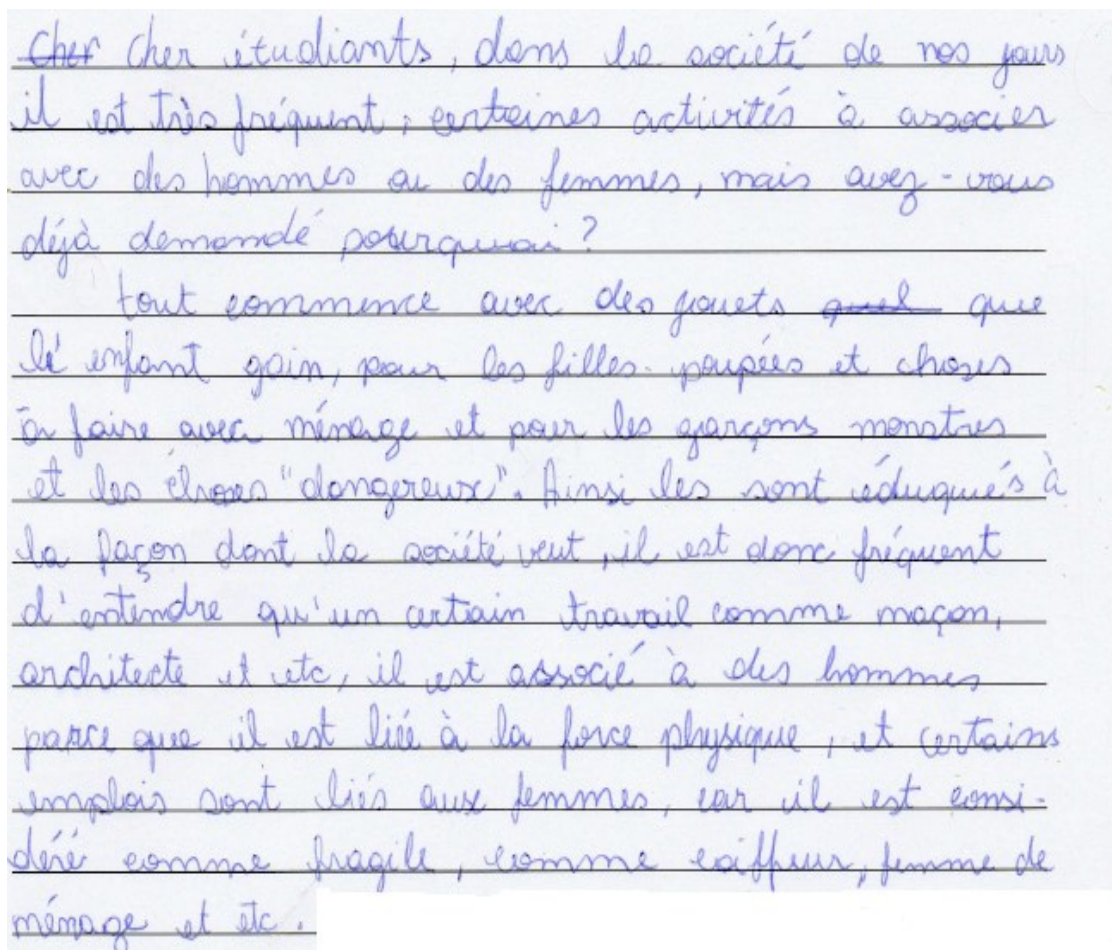 Cher Cher étudiants, dans la société de nos jours
il est très fréquent, certaines activités à associer
avec des hommes ou des femmes, mais avez-vous
déjà demandé pourquoi?
tout commence avec des jouets quel que
lé enfant gain, pour les filles poupées et choses
à faire avec ménage et pour les garçons monstres
et les choses "dangereux". Ainsi les sont éduqués à
la façon dont la société veut, il est donc fréquent
d'entendre qu'un certain travail comme maçon,
architecte et etc, il est associé à des hommes
parce que il est liée à la force physique, et certains
emplois sont liés aux femmes, car il est consi-
déré comme fragile, comme coiffeur, femme de
ménage et etc.